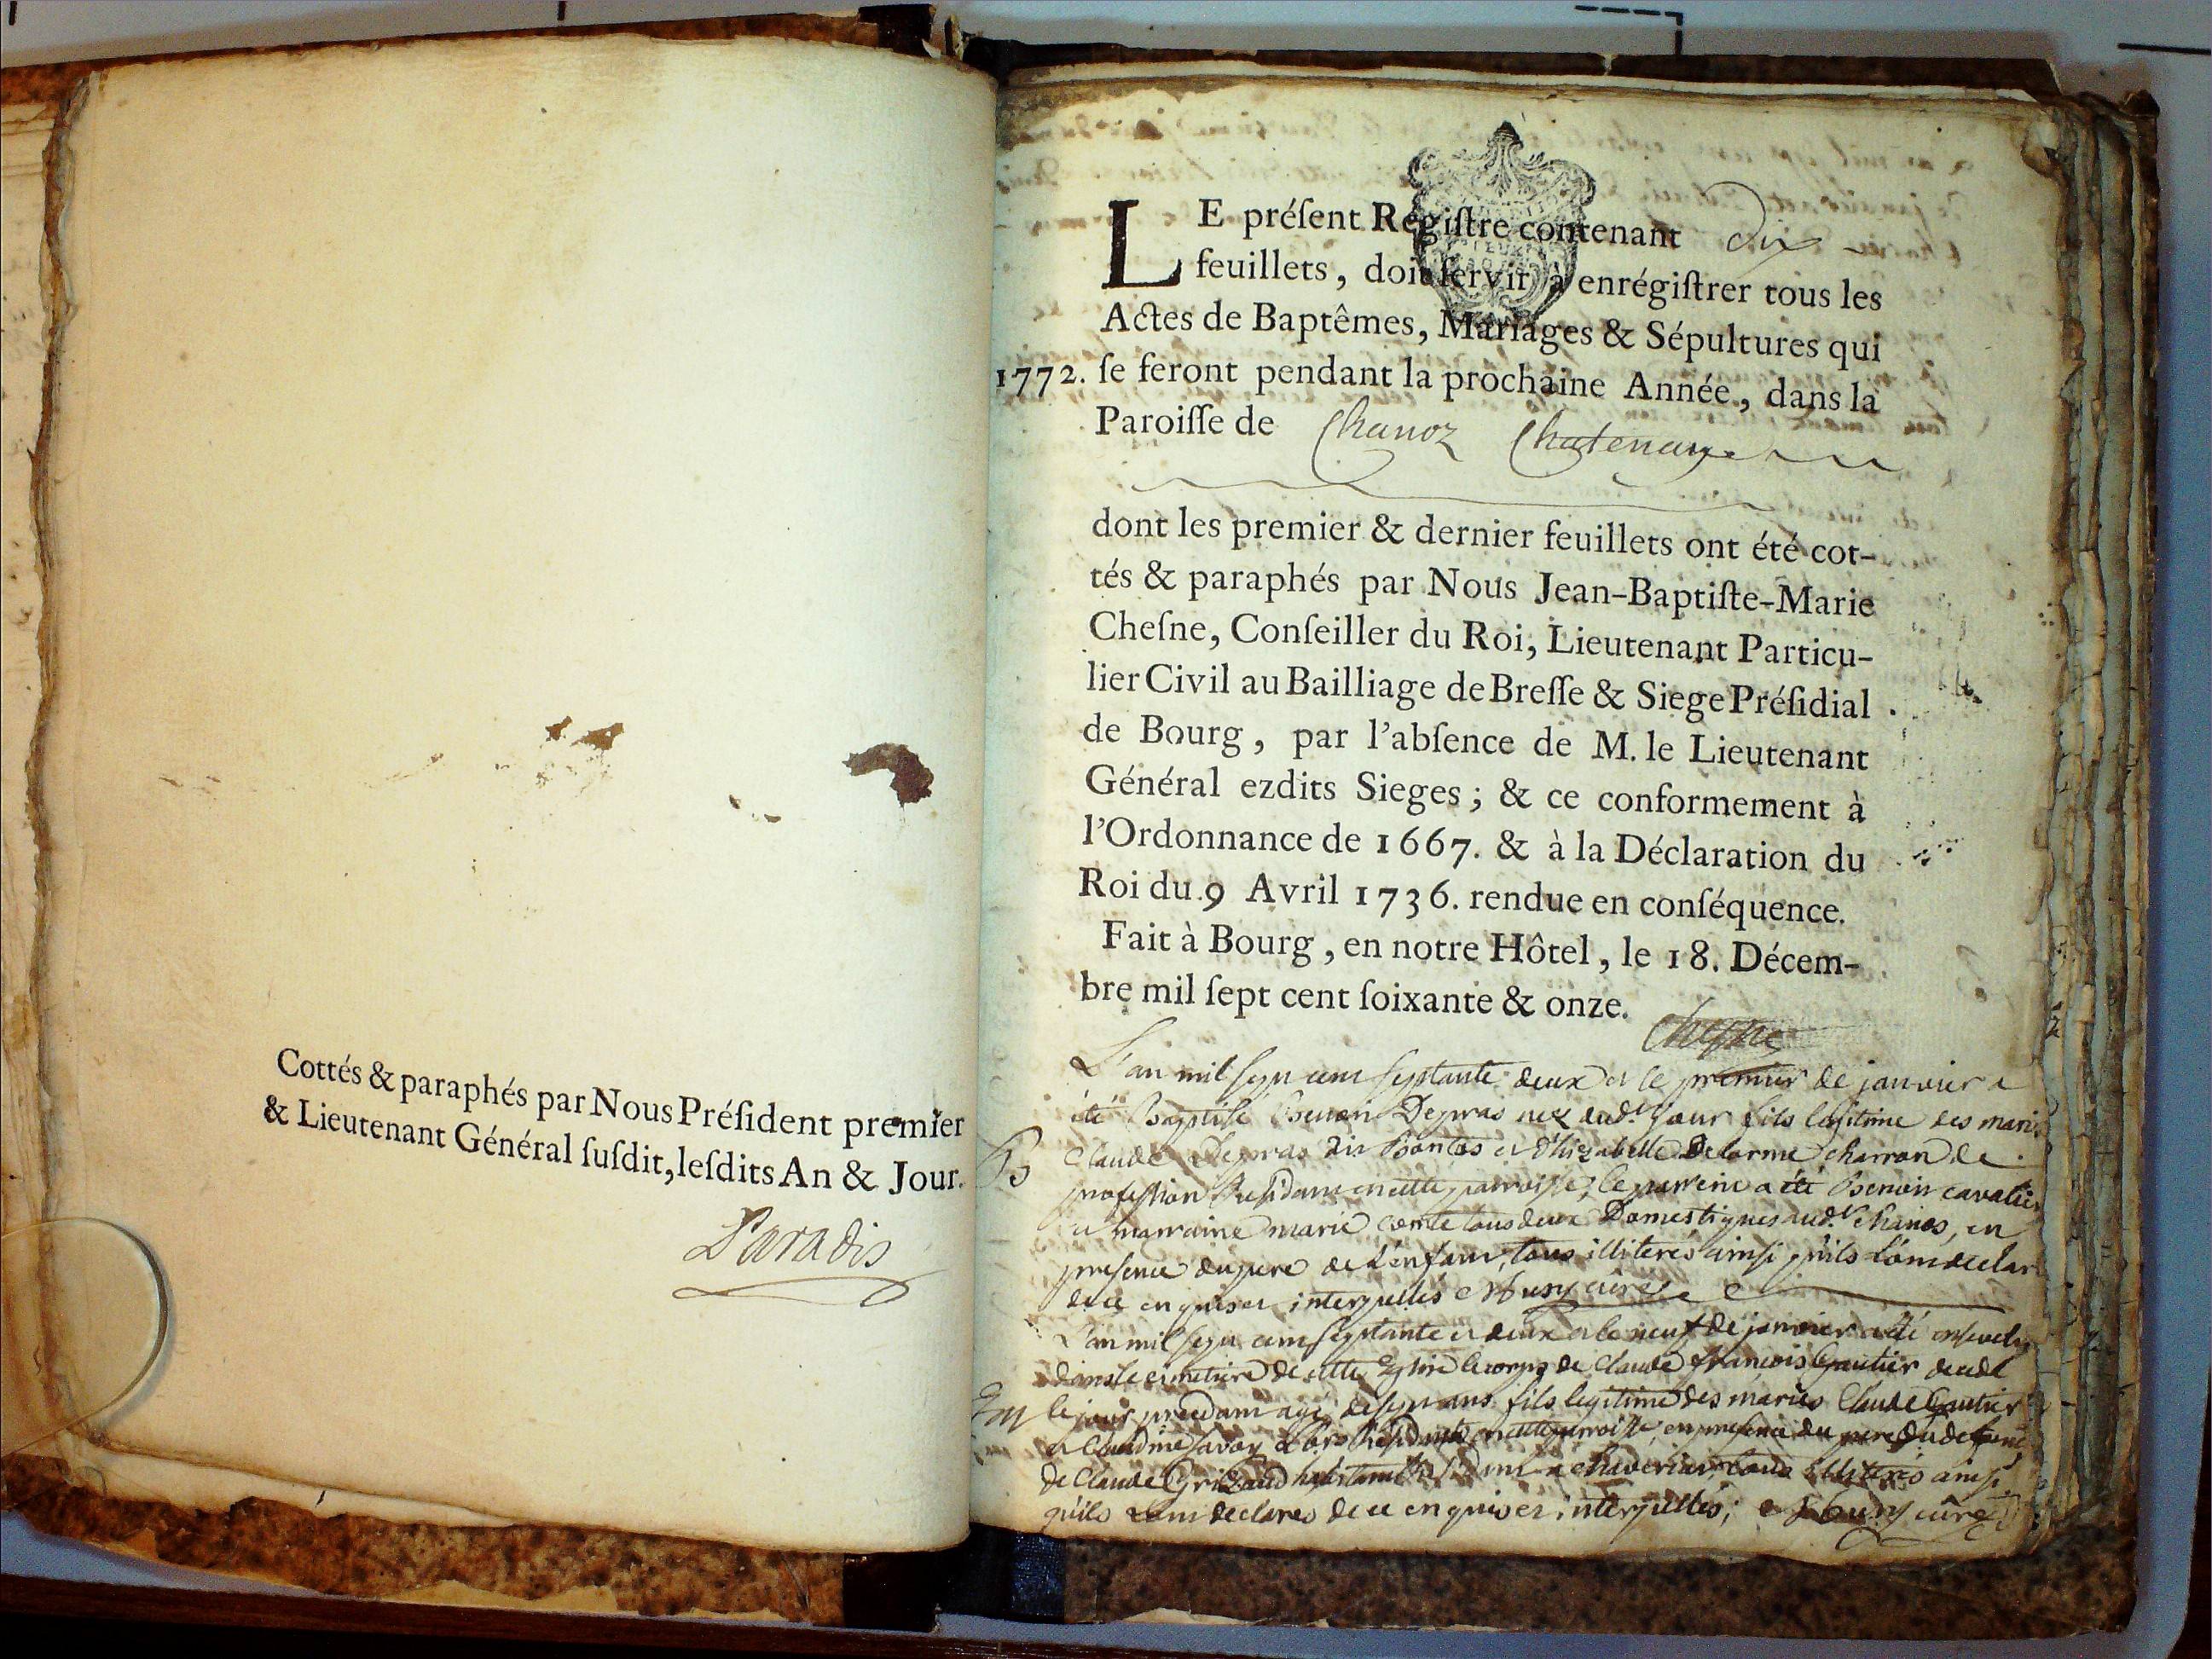 Cottés & paraphés par Nous Préſident premier
& Lieutenant Général ſuſdit, leſdits An & Jour.
Paradis
LE préſent Régiſtre contenant dix
feuillets, doit ſervir à enrégiſtrer tous les
Actes de Baptêmes, Mariages & Sépultures qui
1772. ſe feront pendant la prochaine Année, dans la
Paroiſſe de Chanoz Chatenay
dont les premier & dernier feuillets ont été cot-
tés & paraphés par Nous Jean-Baptiſte-Marie
Cheſne, Conſeiller du Roi, Lieutenant Particu-
lier Civil au Bailliage de Breſſe & Siege Préſidial
de Bourg, par l'abſence de M. le Lieutenant
Général ezdits Sieges; & ce conformement à
l'Ordonnance de 1667. & à la Déclaration du
Roi du 9 Avril 1736. rendue en conſéquence.
Fait à Bourg, en notre Hôtel, le 18. Décem-
bre mil ſept cent ſoixante & onze.
Chesne
L'an mil sept cent septante deux et le premier de janvier a
été Baptisé Benoit Depras nez aud.t jour fils legitime des mariés
B Claude Depras dit et Delorme charron de
profession Residant en cette parroisse; le parrein a été Benoit cavalier
et marraine marie comte tous deux Domestiques aud.t Chanos, en
presence du pere de l'enfant, tous illiterés ainsi qu'ils l'ont declaré
de ce enquis et interpellés Buzy curé
L'an mil sept cent septante et deux et le neuf de janvier a été enseveli
dans le cimetiere de cette Eglise le corps de Claude françois Gautier decedé
le jour precedant agé de sept ans fils legitime des mariés Claude Gautier
et Claudine Savoy Residants en cette parroisse, en presence du pere du defunt
de Claude habitant a tous illiterés ainsi
qu'ils l'ont declarés de ce enquis et interpellés; Buzy curé